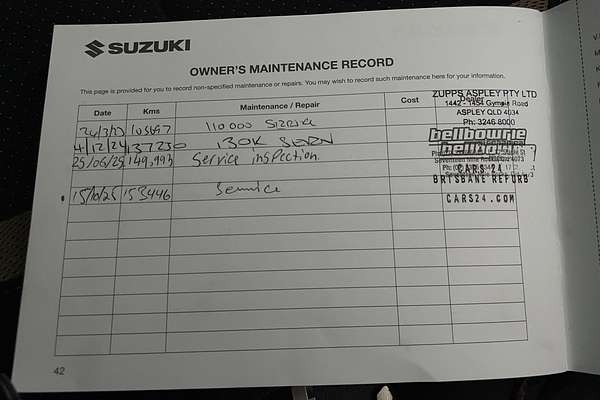 SUZUKI
OWNER'S MAINTENANCE RECORD
This page is provided for you to record non-specified maintenance or repairs. You may wish to record such maintenance here for your information.
Date Kms Maintenance / Repair Cost Dealer
ZUPPS ASPLEY PTY LTD
1442 - 1454 Gympie Road
ASPLEY QLD 4034
Ph: 3246 8000
110 000
4/12/24 137230 130K
bellbowrie
25/06/25 149,993 Service inspection.
CARS 24
BRISBANE REFURB
15/10/25 153446 Service
CARS24.COM
42